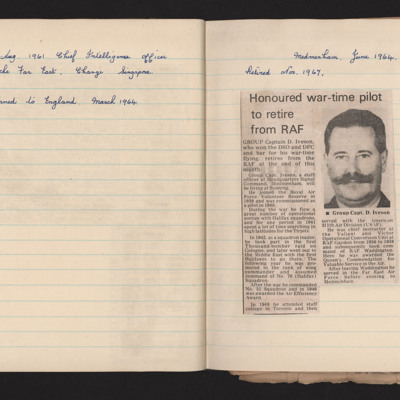 Aug. 1961 Chief Intelligence Officer
Far East. Changi Singapore.
to England. March 1964.
Medmenham. June 1964.
Retired Nov. 1967.
Honoured war-time pilot
to retire
from RAF
GROUP Captain D. Iveson,
who won the DSO and DFC
and bar for his war-time
flying, retires from the
RAF at the end of this
month.
Group Capt. Iveson, a staff
officer at Headquarters Signal
Command, Medmenham, will
be living at Boxing.
He joined the Royal Air
Force Volunteer Reserve in
1938 and was commissioned as
a pilot in 1940.
During the war he flew a
great number of operational
sorties with Halifax squadrons,
and for one period in 1941
spent a lot of time searching in
high latitudes for the Tirpitz.
In 1942, as a squadron leader,
he took part in the first
Thousand-bomber raid on
Cologne, and later went out to
the Middle East with the first
Halifaxes to go there. The
following year he was pro-
moted to the rank of wing
commander and assumed
command of No. 76 (Halifax)
Squadron.
After the war he commanded
No. Squadron and in 1946
was awarded the Air Efficiency
Award.
In 1948 he attended staff
college in Toronto and then
■ Group Capt. D. Iveson
served with the American
Air Division (USAF).
He was chief instructor at
the Valiant and Victor
Operational Conversion Unit at
RAF Gaydon from 1956 to 1958
and subsequently took com-
mand of RAF Waddington.
Here he was awarded the
Queen's Commendation for
Valuable Service in the Air.
After leaving Waddington he
served in the Far East Air
Force before coming to
Medmenham.